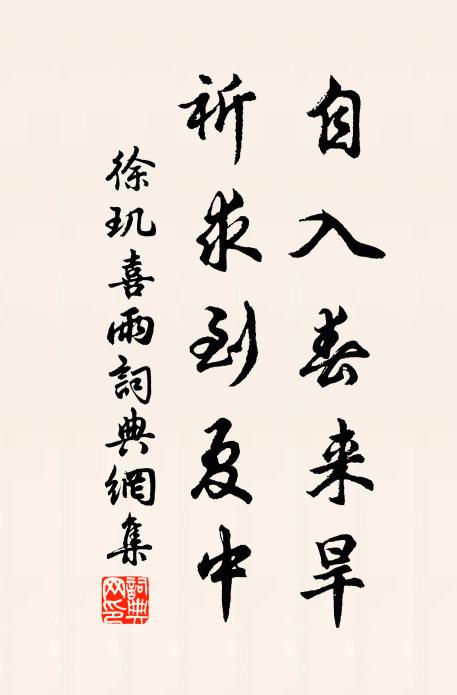 自入春来旱
祈求到夏中
徐玑喜雨詞典網集
詞典網印